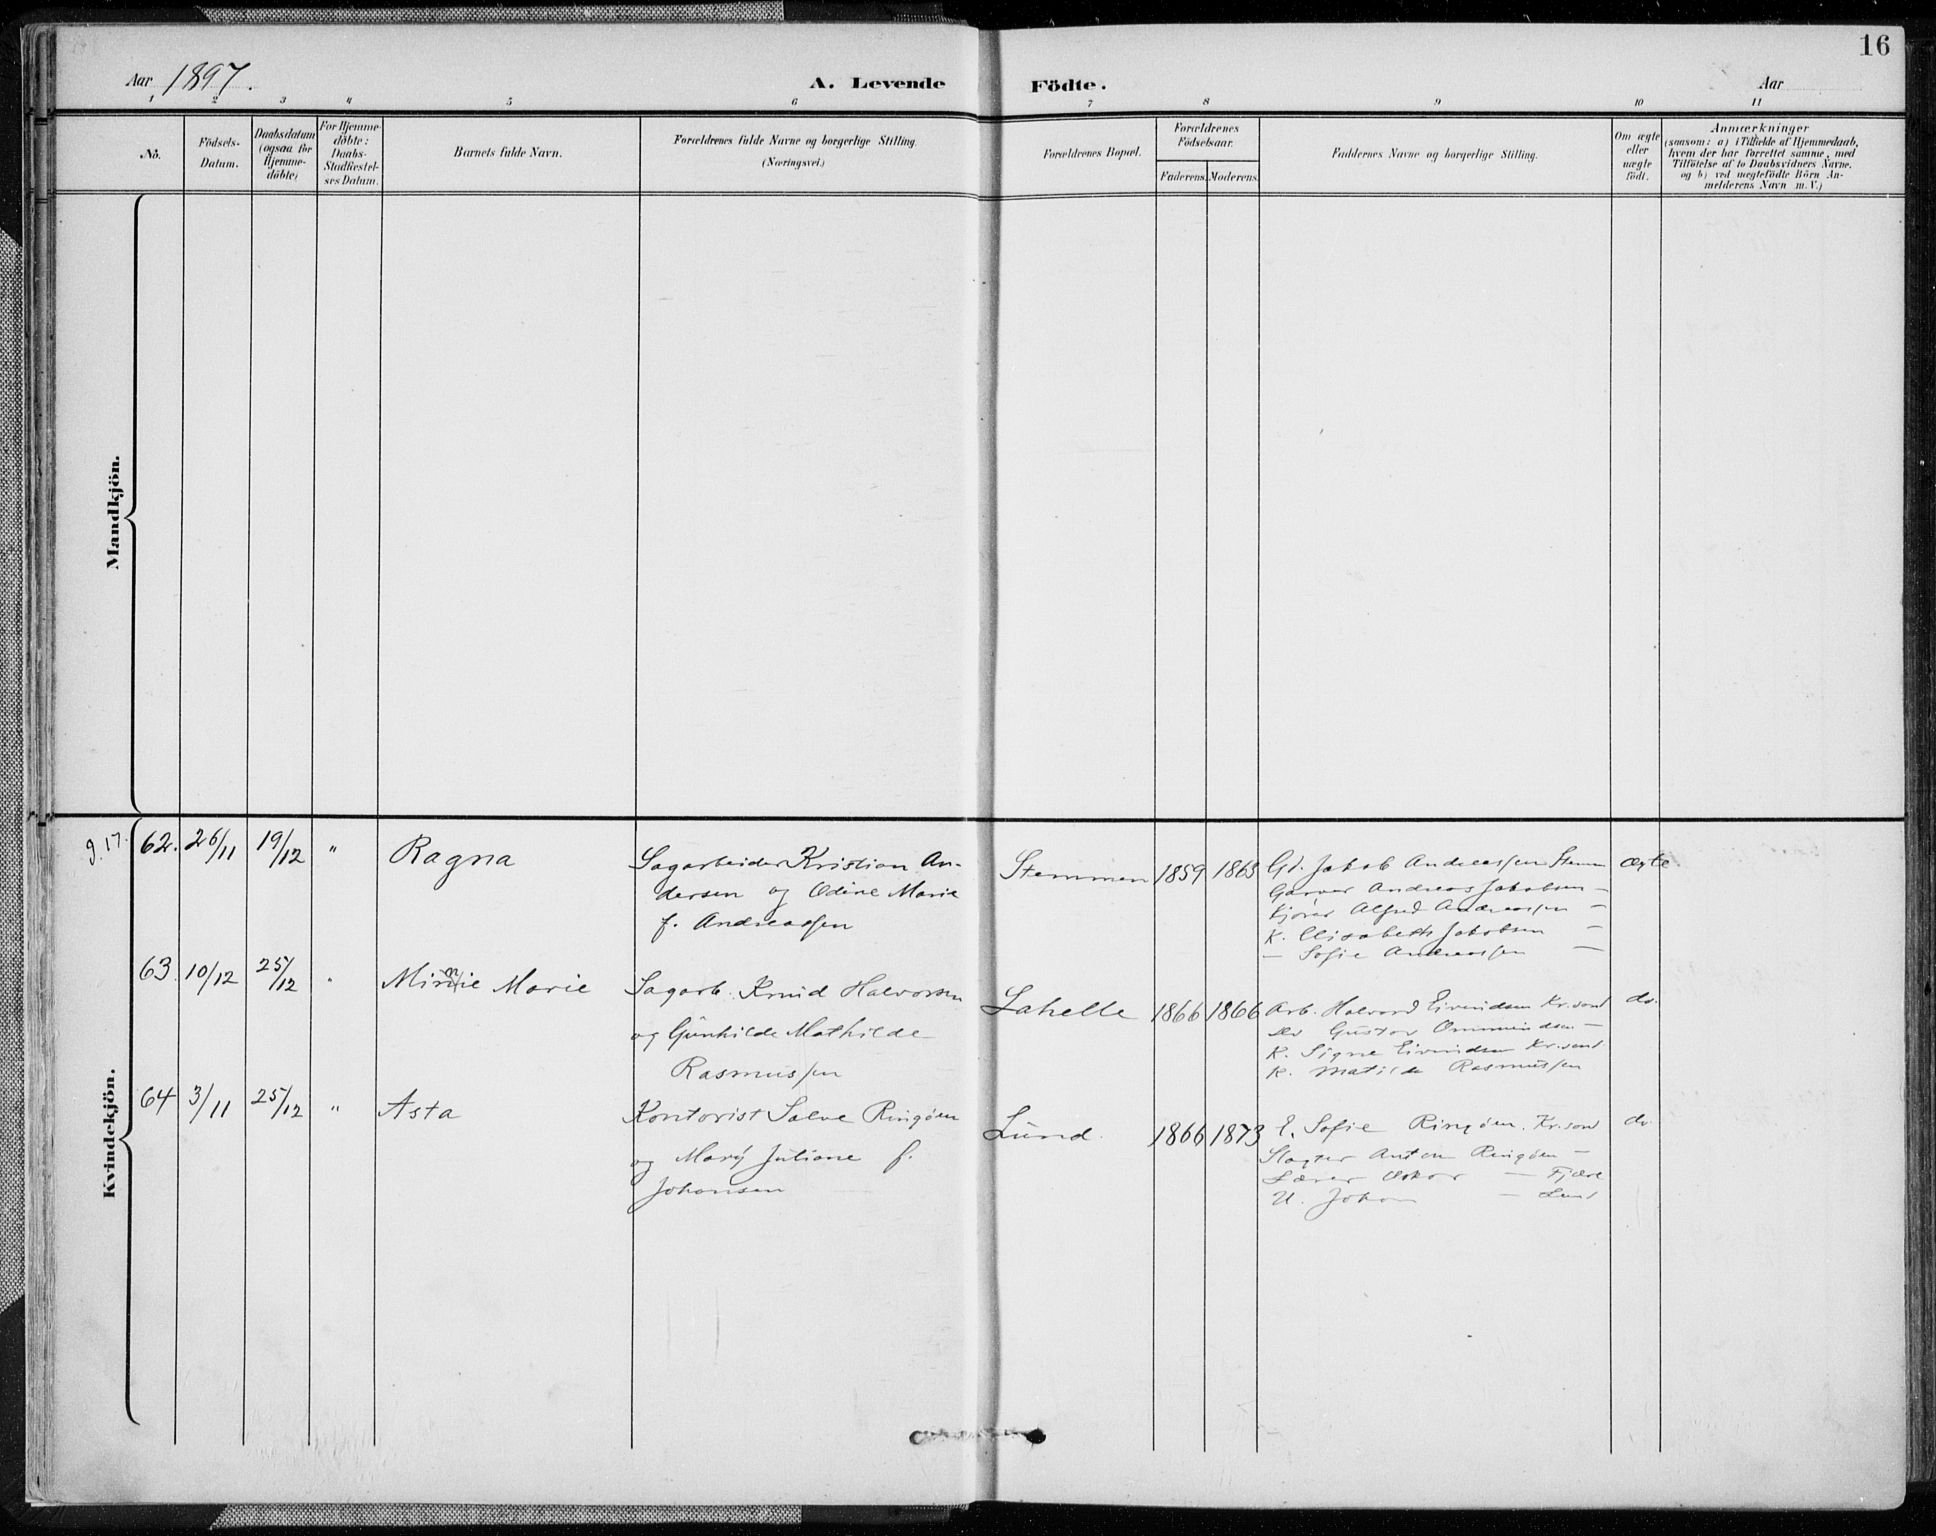 16
Aar 1897. A. Levende Födte. Aar
1 2 3 4 5 6 7 8 9 10 11
No.
Födsels-
Datum.
Daabsdatum
(ogsaa for
Hjemme-
döbte)
For Hjemme-
döbte:
Daabs-
Stadfestel-
ses Datum.
Barnets fulde Navn.
Forældrenes fulde Navne og borgerlige Stilling.
(Næringsvei.)
Forældrenes Bopæl.
Forældrenes
Födselsaar.
Faderens. Moderens.
Faddernes Navne og borgerlige Stilling.
Om ægte
eller
uægte
födt.
Anmærkninger
(saasom: a) i Tilfælde af Hjemmedaab,
hvem der har forrettet samme, med
Tilföielse af to Daabsvidners Navne.
og b) ved uægtefödte Börn An-
melderens Navn m. V.)
Mandkjön.
Kvindekjön.
9.17.
62. 26/11 19/12 " Ragna
Sagarbeider Kristian An-
dersen og Odine Marie
f. Andreassen
Stemmen 1859 1865
Gd. Jakob Andreassen Stemm
Garver Andreas Jakobsen —
Kjører Alfred Andreassen —
K. Elisabeth Jakobsen —
— Sofie Andreassen —
ægte
63. 10/12 25/12 " Minnie Marie
Sagarb. Knud Halvorsen
og Gunhilde Mathilde
Rasmussen
Lahelle 1866 1866
Arb. Halvord Eivindsen Kr.sand
Gustav Ommundsen —
K. Signe Eivindsen Kr.sand
K. Matilde Rasmussen
do.
64 3/11 25/12 " Asta
Kontorist Salve Ringøen
og Mary Juliane f.
Johansen
Lund. 1866 1873
E. Sofie Ringøen. Kr.sand
Slagter Anton Ringøen —
Lærer Oskar — Fjære
U. Johan — Lund
do.